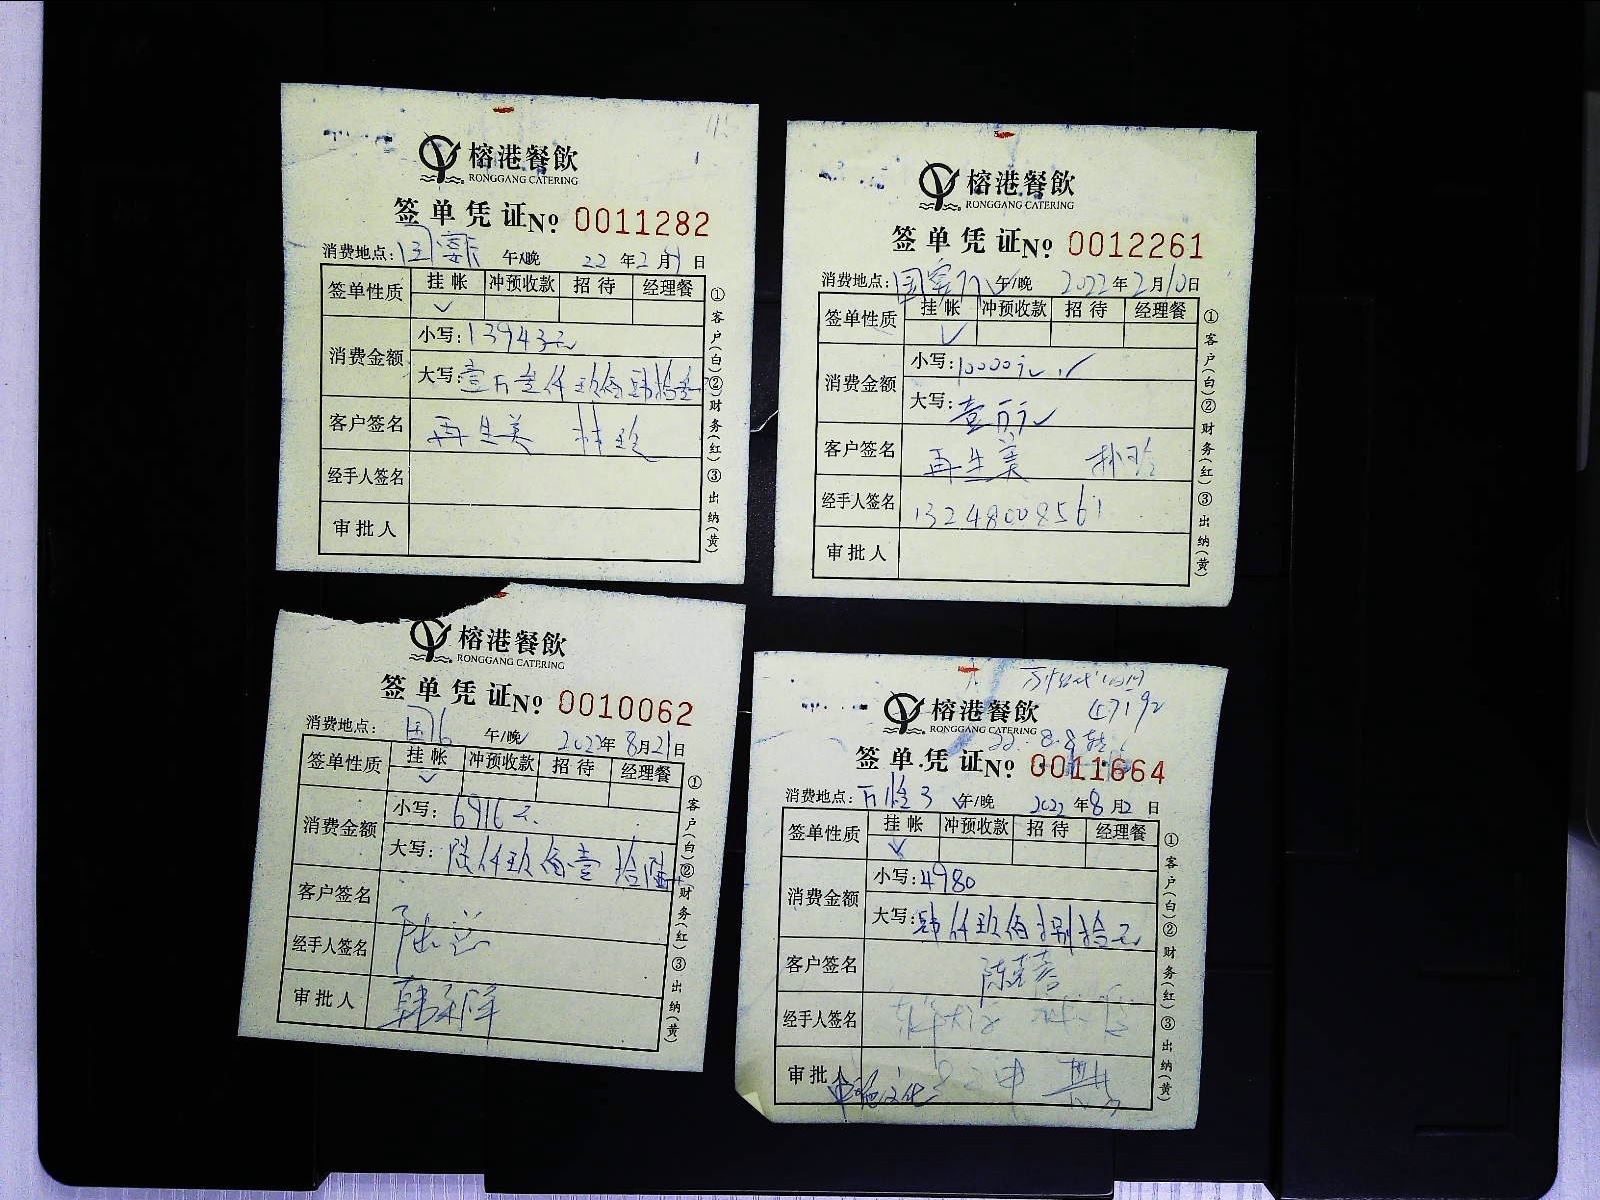 榕港餐飲
RONGGANG CATERING
签单凭证 № 0011282
消费地点: 午/晚 22年2月 日
签单性质 挂帐 冲预收款 招待 经理餐
✓
消费金额 小写:13943元
大写:壹万叁仟玖佰肆拾叁
客户签名 再生美 林玲
经手人签名
审批人
①客户(白)②财务(红)③出纳(黄)
榕港餐飲
RONGGANG CATERING
签单凭证 № 0012261
消费地点: 午/晚 2022年2月10日
签单性质 挂帐 冲预收款 招待 经理餐
✓
消费金额 小写:10000元
大写:壹万元
客户签名 再生美 林玲
经手人签名 13248008561
审批人
①客户(白)②财务(红)③出纳(黄)
榕港餐飲
RONGGANG CATERING
签单凭证 № 0010062
消费地点: 国6 午/晚 2022年8月21日
签单性质 挂帐 冲预收款 招待 经理餐
✓
消费金额 小写:6916元
大写:陆仟玖佰壹拾陆
客户签名
经手人签名 陆总
审批人
①客户(白)②财务(红)③出纳(黄)
47192
榕港餐飲
RONGGANG CATERING
22.8.8
签单凭证 № 0011664
消费地点: 午/晚 2022年8月2日
签单性质 挂帐 冲预收款 招待 经理餐
✓
消费金额 小写:4980
大写:肆仟玖佰捌拾元
客户签名
经手人签名
审批人
①客户(白)②财务(红)③出纳(黄)